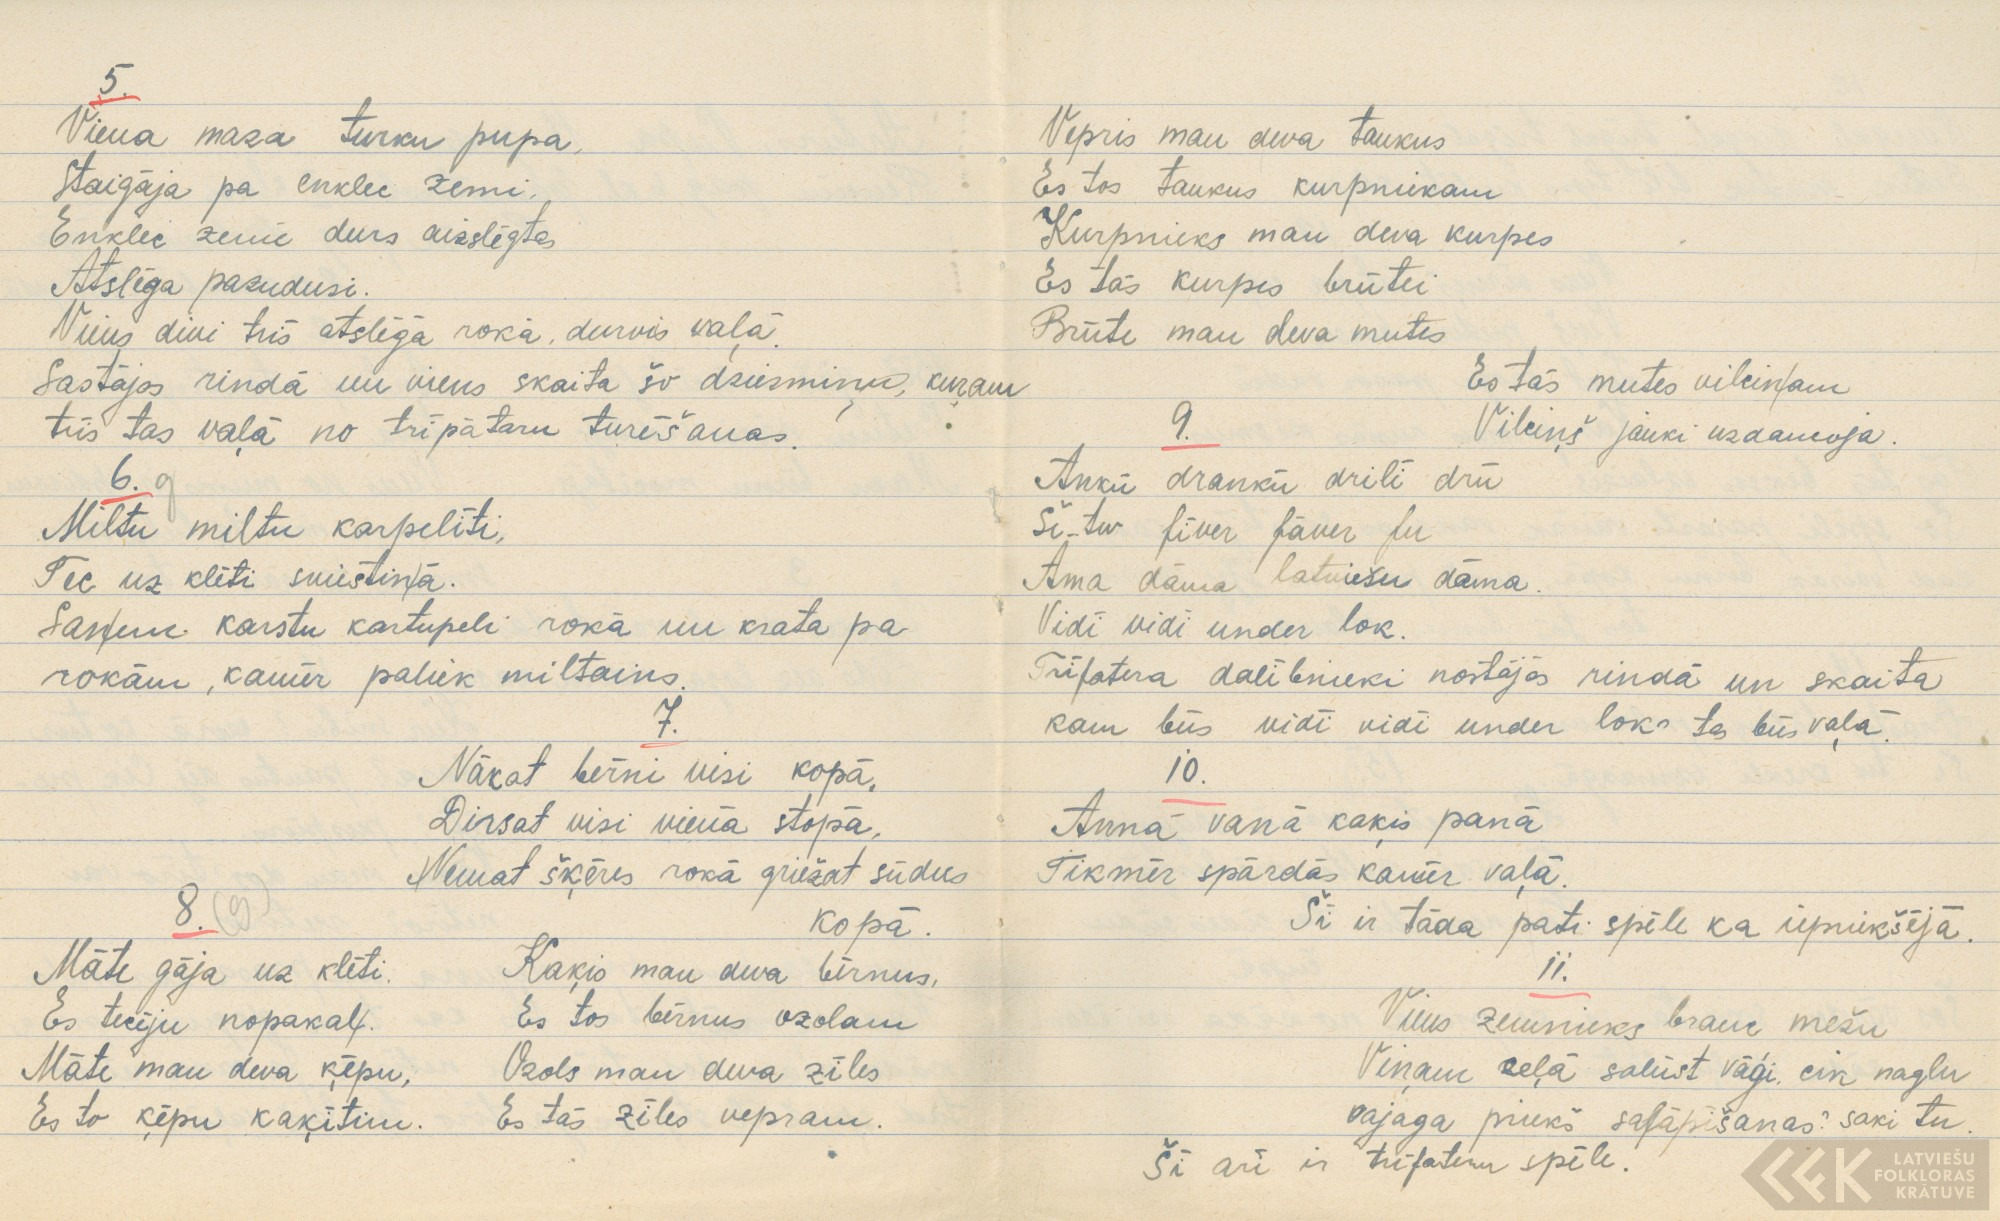 5.
Viena maza turku pupa,
Staigāja pa enklec zemi.
Enklec zemē durs aizslēgtas
Atslēga pazudusi.
Viens divi trīs atslēga rokā, durvis vaļā.
Sastājos rindā un viens skaita šo dziesmiņu, kuŗam
trīs tas vaļā no trīpātaru turēšanas.
6. g
Miltu miltu karpelīti,
Tec uz klēti sviestiņā.
Saņem karstu kartupeli rokā un krata pa
rokām, kamēr paliek miltains.
7.
Nākat bērni visi kopā,
Dirsat visi vienā stopā,
Ņemat šķēres rokā griežat sūdus
kopā.
8. (g)
Māte gāja uz klēti.
Es teciju nopakaļ.
Māte man deva ķēpu,
Es to ķēpu kaķītim.
Kaķis man deva bērnus,
Es tos bērnus ozolam
Ozols man deva zīles
Es tās zīles vepram.
Vepris man deva taukus
Es tos taukus kurpniekam
Kurpnieks man deva kurpes
Es tās kurpes brūtei
Brūte man deva mutes
Es tās mutes vilciņam
Vilciņš jauki uzdancoja.
9.
Ankū drankū drilī drū
Si-tu fīver fāver fu
Ama dāma latviešu dāma.
Vidī vidī under lok.
Trīfatera dalībnieki nostājās rindā un skaita
kam būs vidī vidī under loks tas būs vaļā.
10.
Annā vanā kaķis panā
Tikmēr spārdās kamēr vaļā.
Šī ir tāda pati spēle ka iepriekšējā.
11.
Viens zemnieks brauc mežu
Viņam ceļā salūst vāģi, cik naglu
vajaga priekš salāpīšanas? saki tu.
Šī arī ir trīfateru spēle.
LATVIEŠU
FOLKLORAS
KRĀTUVE